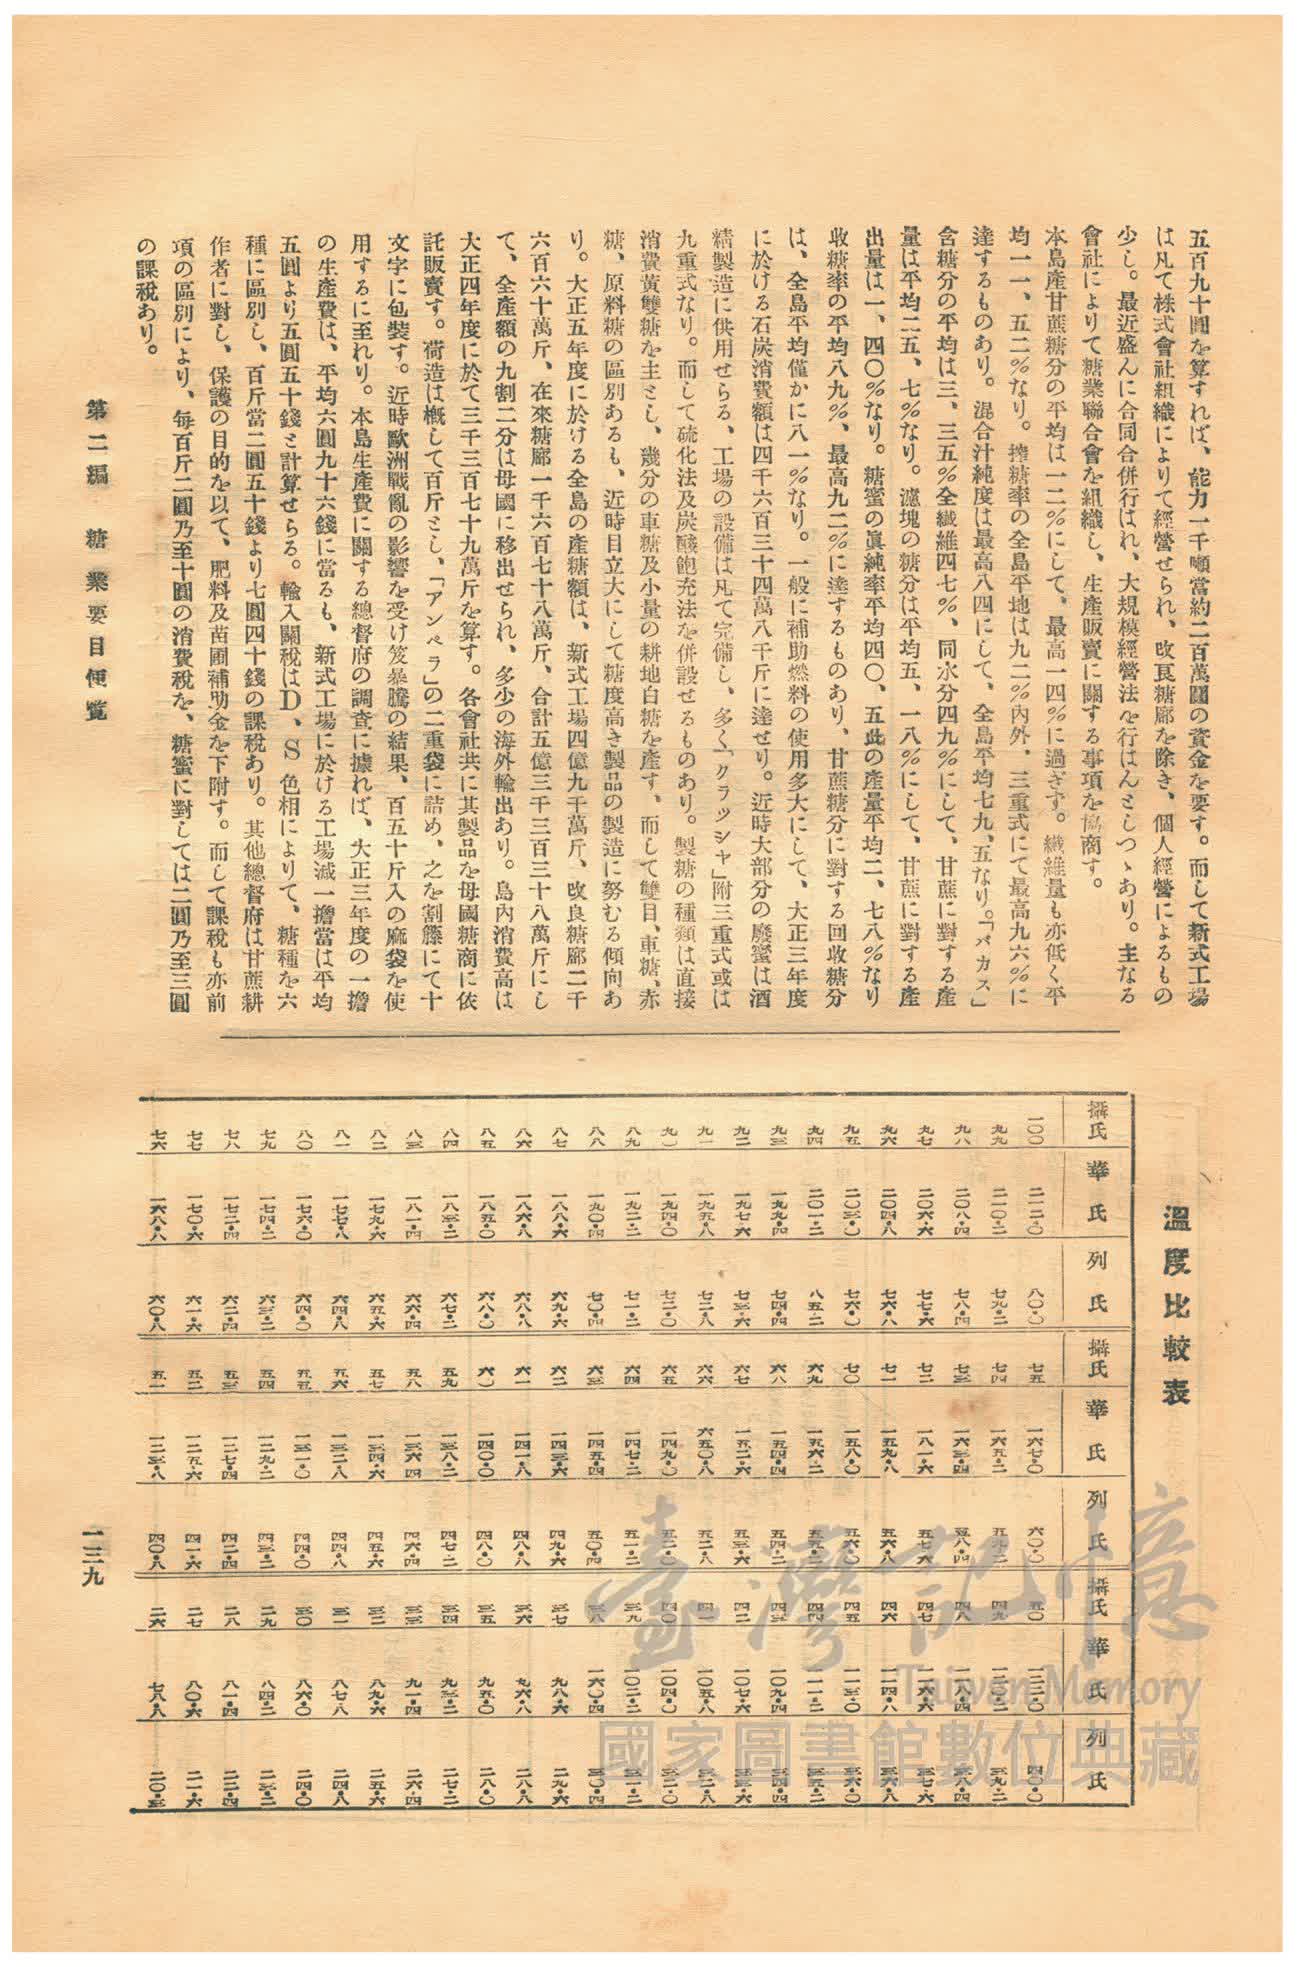 五百九十圓を算すれば、能力一千噸當約二百萬圓の資金を要す。而して新式工場
は凡て株式會社組織によりて經營せられ、改良糖廍を除き、個人經營によるもの
少し。最近盛んに合同合併行はれ、大規模經營法を行はんとしつゝあり。主なる
會社によりて糖業聯合會を組織し、生產販賣に關する事項を協商す。
本島產甘蔗糖分の平均は一二%にして、最高一四%に過ぎす。纎維量も亦低く平
均一一、五二%なり。搾糖率の全島平地は九二%內外、三重式にて最高九六%に
達するものあり。混合汁純度は最高八四にして、全島平均七九、五なり。「バカス」
含糖分の平均は三、三五%全纎維四七%、同水分四九%にして、甘蔗に對する產
量は平均二五、七%なり。濾塊の糖分は平均五、一八%にして、甘蔗に對する產
出量は一、四〇%なり。糖蜜の眞純率平均四〇、五此の產量平均二、七八%なり
收糖率の平均八九%、最高九二%に達するものあり、甘蔗糖分に對する回收糖分
は、全島平均僅かに八一%なり。一般に補助燃料の使用多大にして、大正三年度
に於ける石炭消費額は四千六百三十四萬八千斤に達せり。近時大部分の廢蜜は酒
精製造に供用せらる、工場の設備は凡て完備し、多く「クラッシャ」附三重式或は
九重式なり。而して硫化法及炭酸飽充法を併設せるものあり。製糖の種類は直接
消費黃雙糖を主とし、幾分の車糖及小量の耕地白糖を產す、而して雙目、車糖、赤
糖、原料糖の區別あるも、近時目立大にして糖度高き製品の製造に努むる傾向あ
り。大正五年度に於ける全島の產糖額は、新式工場四億九千萬斤、改良糖廍二千
六百六十萬斤、在來糖廍一千六百七十八萬斤、合計五億三千三百三十八萬斤にし
て、全產額の九割二分は母國に移出せられ、多少の海外輸出あり。島內消費高は
大正四年度に於て三千三百七十九萬斤を算す。各會社共に其製品を母國糖商に依
託販賣す。荷造は槪して百斤とし、「アンペラ」の二重袋に詰め、之を割籐にて十
文字に包裝す。近時歐洲戰亂の影響を受け笈暴騰の結果、百五十斤入の麻袋を使
用するに至れり。本島生產費に關する總督府の調査に據れば、大正三年度の一擔
の生產費は、平均六圓九十六錢に當るも、新式工場に於ける工場減一擔當は平均
五圓より五圓五十錢と計算せらる。輸入關稅はD、S色相によりて、糖種を六
種に區別し、百斤當二圓五十錢より七圓四十錢の課稅あり。其他總督府は甘蔗耕
作者に對し、保護の目的を以て、肥料及苗圃補助金を下附す。而して課稅も亦前
項の區別により、每百斤二圓乃至十圓の消費稅を、糖蜜に對しては二圓乃至三圓
の課稅あり。
溫度比較表
攝氏 華氏 列氏 攝氏 華氏 列氏 攝氏 華氏 列氏
一〇〇 二一二・〇 八〇・〇 七五 一六七・〇 六〇・〇 五〇 一二二・〇 四〇・〇
九九 二一〇・二 七九・二 七四 一六五・二 五九・二 四九 一二〇・二 三九・二
九八 二〇八・四 七八・四 七三 一六三・四 五八・四 四八 一一八・四 三八・四
九七 二〇六・六 七七・六 七二 一八一・六 五七・六 四七 一一六・六 三七・六
九六 二〇四・八 七六・八 七一 一五九・八 五六・八 四六 一一四・八 三六・八
九五 二〇三・〇 七六・〇 七〇 一五八・〇 五六・〇 四五 一一三・〇 三六・〇
九四 二〇一・二 八五・二 六九 一五六・二 五五・二 四四 一一一・二 三五・二
九三 一九九・四 七四・四 六八 一五四・四 五四・二 四三 一〇九・四 三四・四
九二 一九七・六 七三・六 六七 一五二・六 五三・六 四二 一〇七・六 三三・六
九一 一九五・八 七二・八 六六 六五〇・八 五二・八 四一 一〇五・八 三二・八
九〇 一九四・〇 七二・〇 六五 一四九・〇 五二・〇 四〇 一〇四・〇 三二・〇
八九 一九二・二 七一・二 六四 一四七・二 五一・二 三九 一〇二・二 三一・二
八八 一九〇・四 七〇・四 六三 一四五・四 五〇・四 三八 一六〇・四 三〇・四
八七 一八八・六 六九・六 六二 一四三・六 四九・六 三七 九八・六 二九・六
八六 一八六・八 六八・八 六一 一四一・八 四八・八 三六 九六・八 二八・八
八五 一八五・〇 六八・〇 六〇 一四〇・〇 四八・〇 三五 九五・〇 二八・〇
八四 一八三・二 六七・二 五九 一三八・二 四七・二 三四 九三・二 二七・二
八三 一八一・四 六六・四 五八 一三六・四 四六・四 三三 九一・四 二六・四
八二 一七九・六 六五・六 五七 一三四・六 四五・六 三二 八九・六 二五・六
八一 一七七・八 六四・八 五六 一三二・八 四四・八 三一 八七・八 二四・八
八〇 一七六・〇 六四・〇 五五 一三一・〇 四四・〇 三〇 八六・〇 二四・〇
七九 一七四・二 六三・二 五四 一二九・二 四三・二 二九 八四・二 二三・二
七八 一七二・四 六二・四 五三 一二七・四 四二・四 二八 八一・四 二二・四
七七 一七〇・六 六一・六 五二 一二五・六 四一・六 二七 八〇・六 二一・六
七六 一六八・八 六〇・八 五一 一二三・八 四〇・八 二六 七八・八 二〇・三
第二編　糖業要目便覽
一三九
臺灣記憶
Taiwan Memory
國家圖書館數位典藏